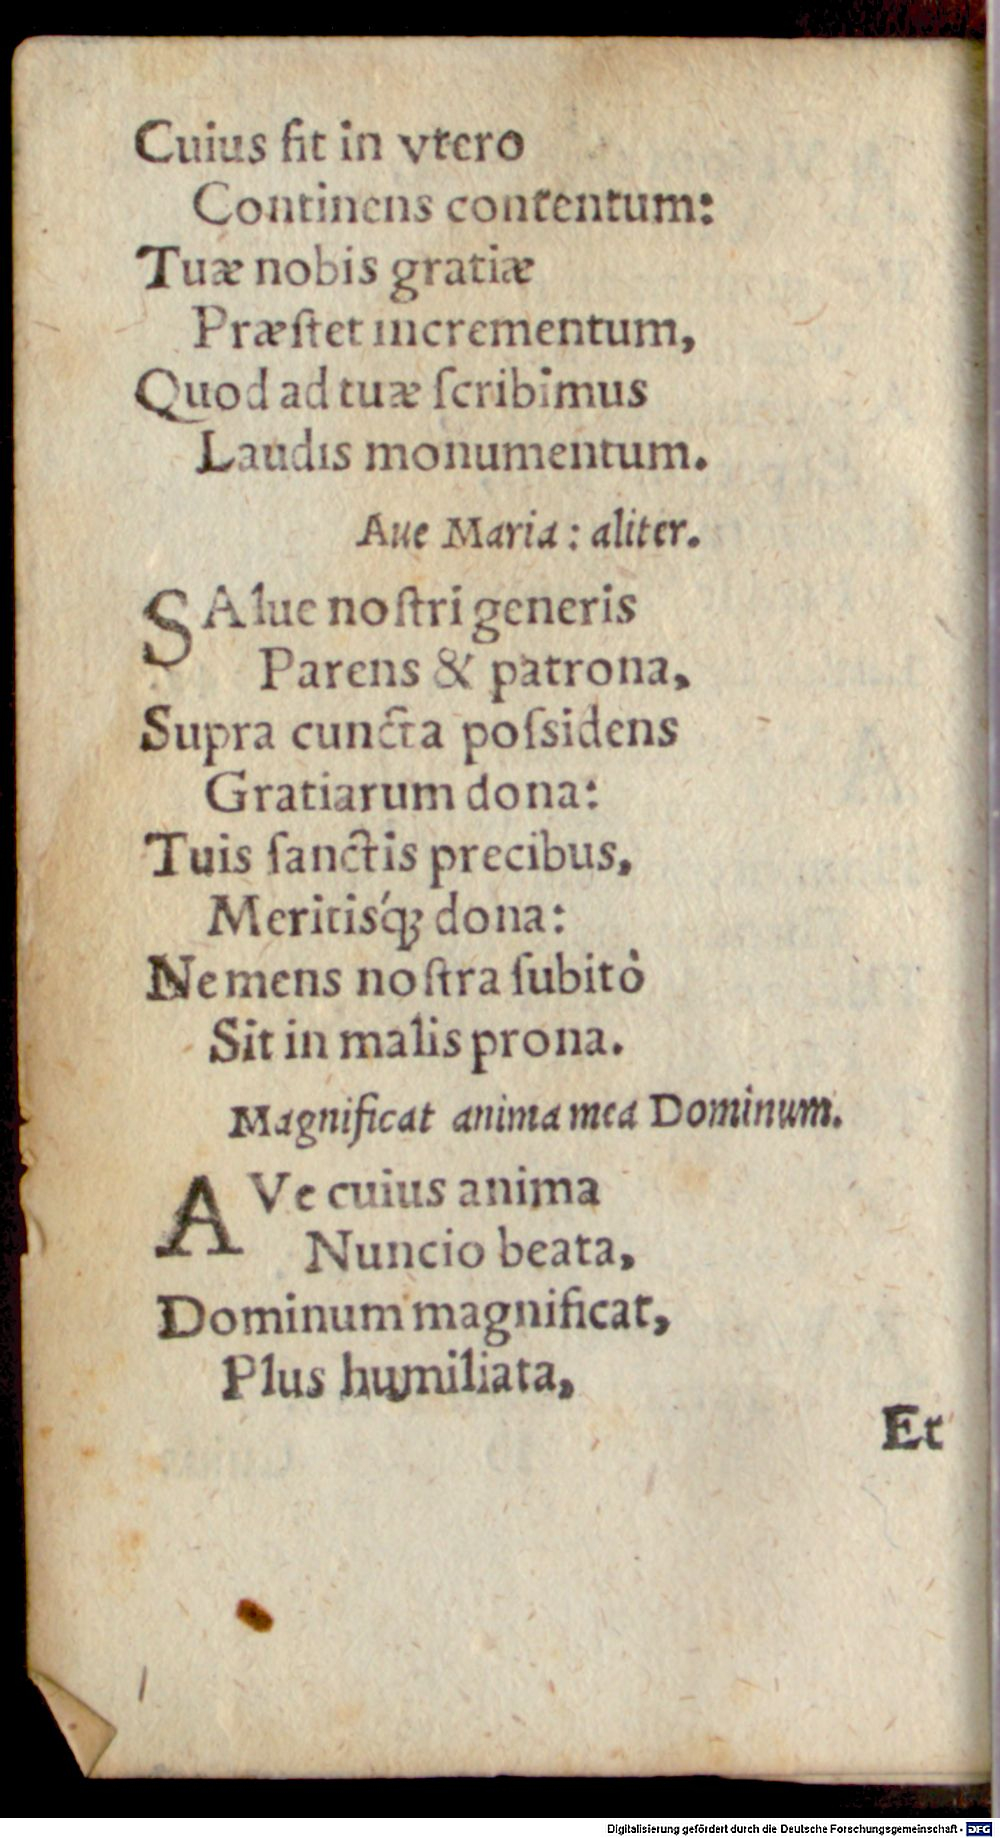 Cuius fit in vtero
Continens contentum:
Tuæ nobis gratiæ
Præſtet incrementum,
Quod ad tuæ ſcribimus
Laudis monumentum.
Aue Maria: aliter.
SAlue noſtri generis
Parens & patrona,
Supra cuncta poſsidens
Gratiarum dona:
Tuis ſanctis precibus,
Meritisq́ꝫ dona:
Ne mens noſtra ſubitò
Sit in malis prona.
Magnificat anima mea Dominum.
AVe cuius anima
Nuncio beata,
Dominum magnificat,
Plus humiliata,
Et
Digitalisierung gefördert durch die Deutsche Forschungsgemeinschaft - DFG